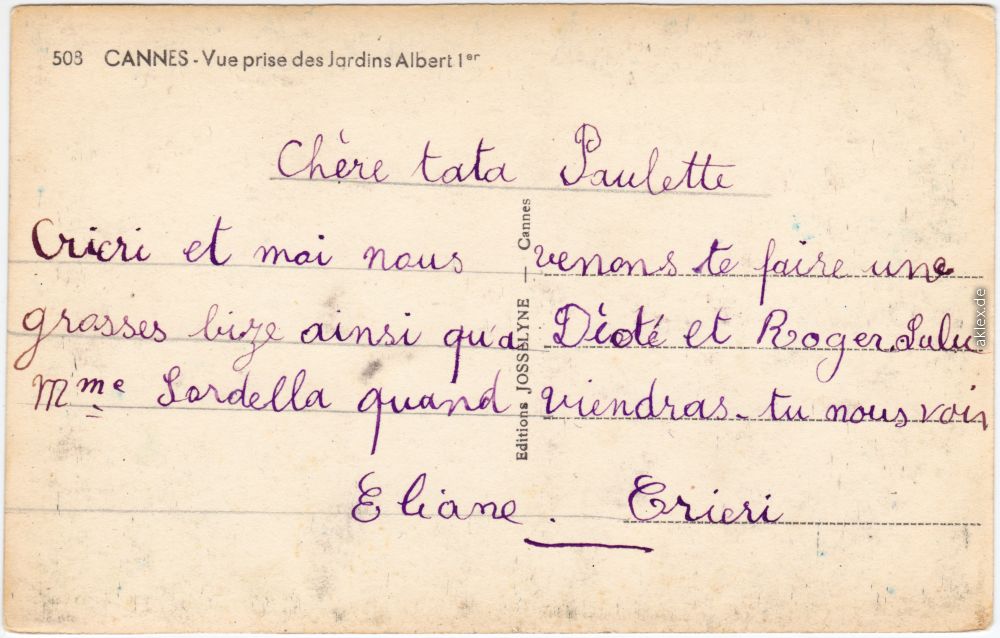 508 CANNES - Vue prise des Jardins Albert 1er
Chère tata Paulette
Cricri et moi nous venons te faire une
grosses bize ainsi qu'a Dédé et Roger. Lulu
Mme Sordella quand viendras-tu nous voir
Eliane. Cricri
Editions JOSSELYNE — Cannes
aklex.de